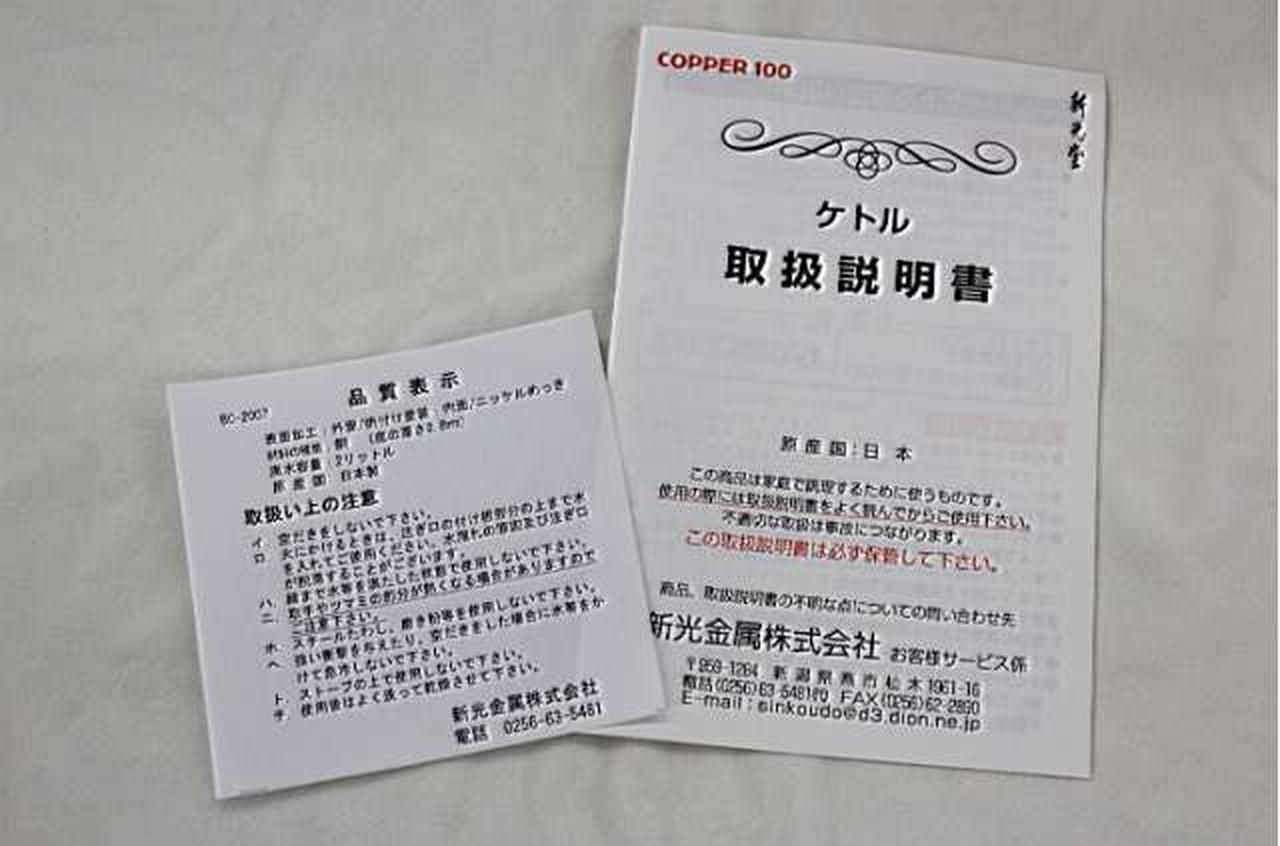 品質表示
BC-2007
表面加工：外面/焼付け塗装：内面/ニッケルめっき
材料の種類：銅 （底の厚さ0.8mm）
満水容量：2リットル
原産国 日本製
取扱い上の注意
イ. 空だきをしないで下さい。
ロ. 火にかけるときは、注ぎ口の付け根部分の上まで水
を入れてご使用ください。水洩れの原因及び注ぎ口
が脱落することがございます。
ハ. 縁まで水等を満たした状態で使用しないで下さい。
ニ. 取手やツマミの部分が熱くなる場合がありますので
ご注意下さい。
ホ. スチールたわし、磨き粉等を使用しないで下さい。
ヘ. 強い衝撃を与えたり、空だきをした場合に水等をか
けて急冷しないで下さい。
ト. ストーブの上で使用しないで下さい。
チ. 使用後はよく洗って乾燥させて下さい。
新光金属株式会社
電話 0256-63-5461
COPPER 100
新光堂
ケトル
取扱説明書
原産国：日本
この商品は家庭で調理するために使うものです。
使用の際には取扱説明書をよく読んでからご使用下さい。
不適切な取扱は事故につながります。
この取扱説明書は必ず保管して下さい。
商品、取扱説明書の不明な点についての問い合わせ先
新光金属株式会社 お客様サービス係
〒959-1284 新潟県燕市杣木1961-16
電話(0256)63-5461㈹ FAX(0256)62-2890
E-mail：sinkoudo@d3.dion.ne.jp